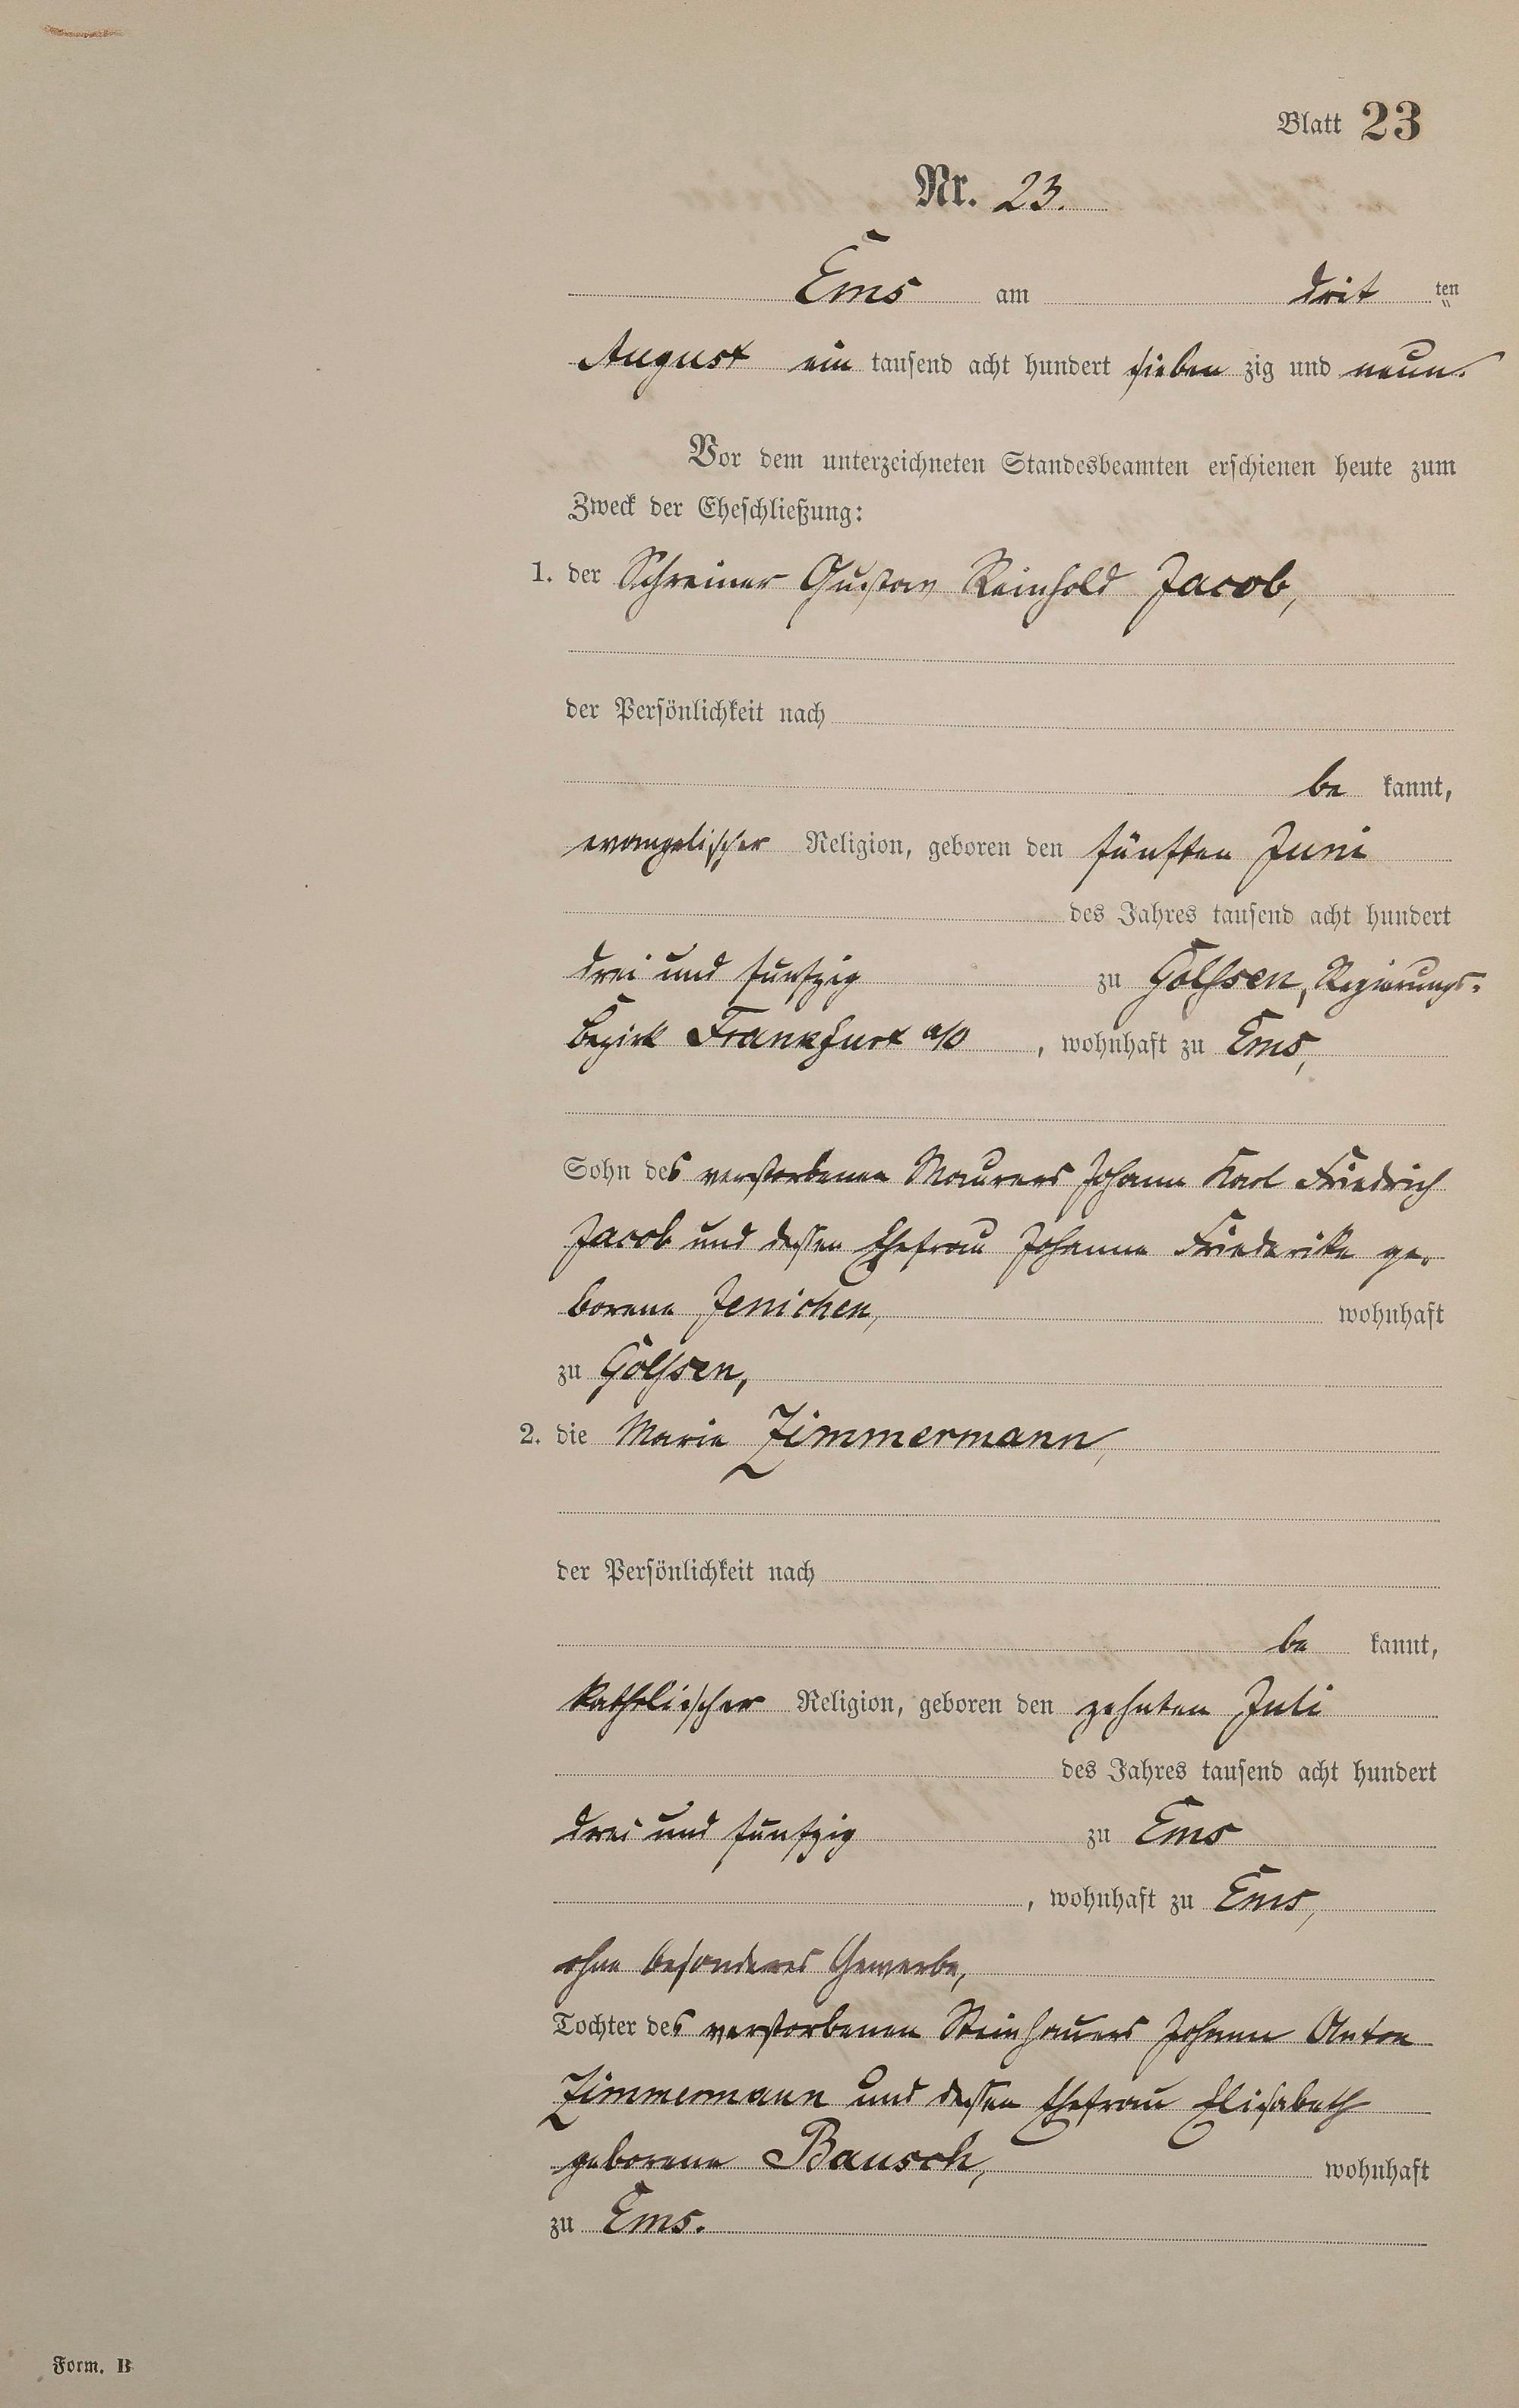 Blatt 23
Nr. 23.
Ems am drit ten
August ein tausend acht hundert sieben zig und neun.
Vor dem unterzeichneten Standesbeamten erschienen heute zum
Zweck der Eheschließung:
1. der Schreiner Gustav Reinhold Jacob,
der Persönlichkeit nach
be kannt,
evangelischer Religion, geboren den fünften Juni
des Jahres tausend acht hundert
drei und funfzig zu Golssen, Regierungs-
bezirk Frankfurt a/O , wohnhaft zu Ems,
Sohn des verstorbenen Maurers Johann Karl Friedrich
Jacob und dessen Ehefrau Johanne Friederike ge-
borene Jenichen, wohnhaft
zu Golssen,
2. die Maria Zimmermann,
der Persönlichkeit nach
be kannt,
katholischer Religion, geboren den zehnten Juli
des Jahres tausend acht hundert
drei und funfzig zu Ems
, wohnhaft zu Ems,
ohne besonderes Gewerbe,
Tochter des verstorbenen Steinhauers Johann Anton
Zimmermann und dessen Ehefrau Elisabeth
geborene Bausch, wohnhaft
zu Ems.
Form. B